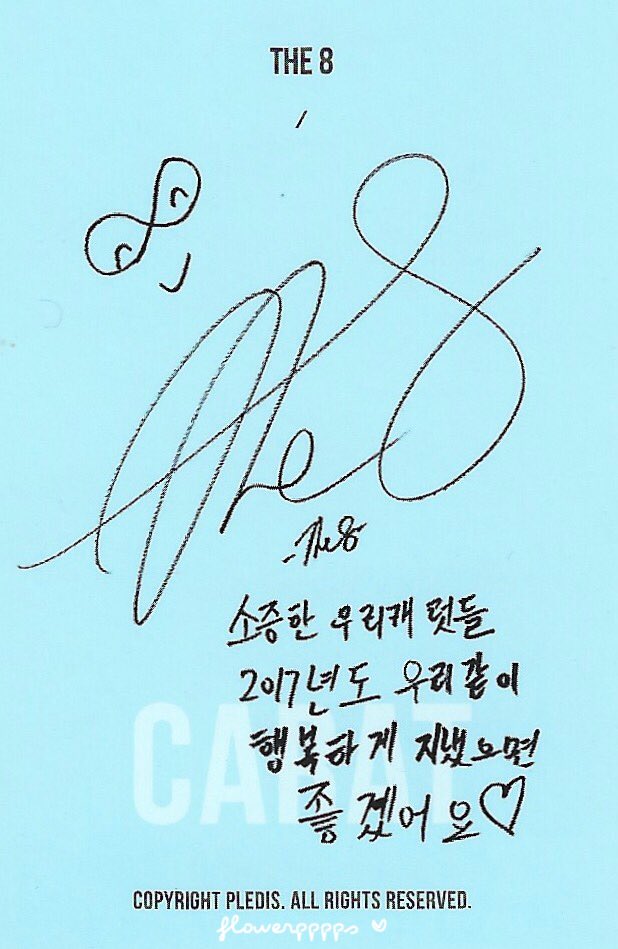 THE 8
The8
-The8-
소중한 우리캐럿들
2017년도 우리같이
행복하게 지냈으면
좋겠어요♡
CARAT
COPYRIGHT PLEDIS. ALL RIGHTS RESERVED.
flowerpppps ♡